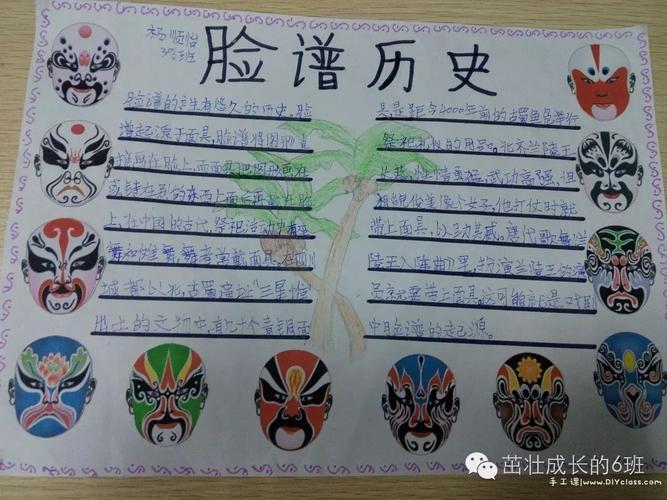 脸谱历史
杨顺怡
脸谱的产生有悠久的历史,脸
谱起源于面具,脸谱将图形直
接画在脸上,而面具把图形画在
或铸在别的东西上面后再戴在脸
上,在中国的古代,祭祀活动中有
舞和傩舞,舞者常戴面具,在四川
成都以北,古蜀遗址“三星堆
出土的文物中,有几十个青铜面
具是距今4000年前的古蜀鱼凫举行
祭祀礼仪的用具。北齐兰陵王
长恭,性情勇猛,武功高强,但
相貌俊美像个女子,他打仗时就
带上面具,以助其威。唐代歌舞《兰
陵王入阵曲》里,扮演兰陵王的演
员就要带上面具,这可能就是戏剧
中脸谱的起源。
茁壮成长的6班
手工课|www.DIYclass.com